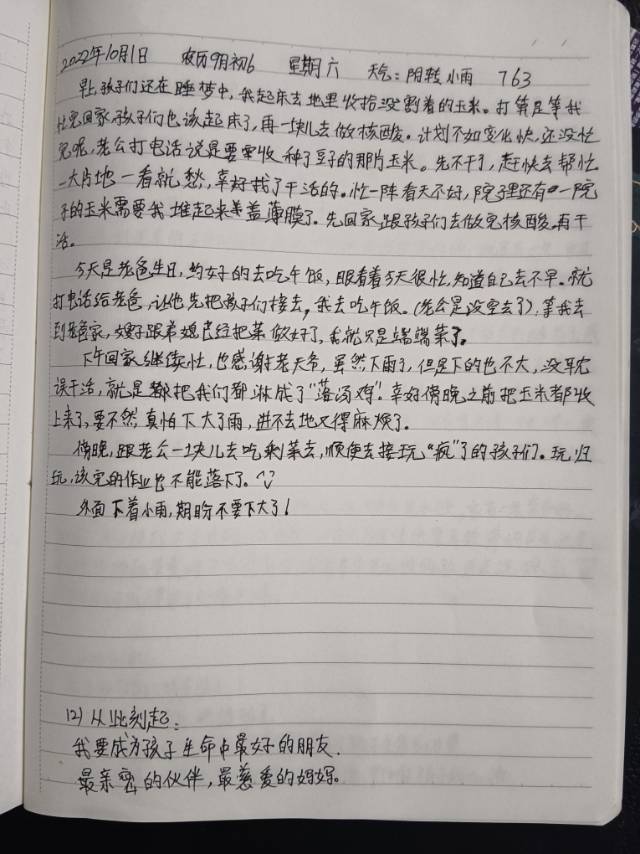 2022年10月1日 农历9月初6 星期六 天气:阴转小雨 763
早上,孩子们还在睡梦中,我起床去地里收拾没割着的玉米。打算是等我
忙完回家,孩子们也该起床了,再一块儿去做核酸。计划不如变化快,还没忙
完呢,老公打电话说是要来收种了豆子的那片玉米。先不干了,赶快去帮忙
一大片地一看就愁,幸好找了干活的。忙一阵看天不好,院子里还有一院
子的玉米需要我堆起来盖薄膜了。先回家跟孩子们去做完核酸,再干
活。
今天是老爸生日,约好的去吃午饭,眼看着今天很忙,知道自己去不早。就
打电话给老爸,让他先把孩子们接去,我去吃午饭。(老公是没空去了),等我去
到老爸家,嫂子跟弟媳已经把菜做好了,我就只是端端菜了。
下午回家继续忙,也感谢老天爷,虽然下雨了,但是下的也不大,没耽
误干活,就是都把我们都淋成了“落汤鸡”。幸好傍晚之前把玉米都收
上来了,要不然真怕下大了雨,进不去地又得麻烦了。
傍晚,跟老公一块儿去吃剩菜去,顺便去接玩“疯”了的孩子们。玩归
玩,该完的作业也不能落下了。
外面下着小雨,期盼不要下大了!
12)从此刻起:
我要成为孩子生命中最好的朋友.
最亲密的伙伴,最慈爱的妈妈。